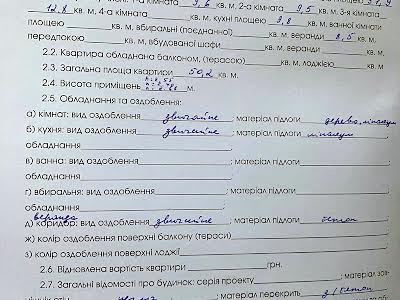 1-а кімната 9,6 кв. м, 2-а кімната 9,5 кв. м, 3-я кімната
12,8 кв. м, 4-а кімната кв. м, кухні площею 8,8 кв. м, ванної кімнати
площею кв. м, вбиральні (поєднаної) кв. м, веранди 8,5 кв. м,
передпокою кв. м, вбудованої шафи кв. м, веранди кв. м.
2.2. Квартира обладнана балконом, (терасою) кв. м, лоджією кв. м.
2.3. Загальна площа квартири 50,2 кв. м.
2.4. Висота приміщень м.
2.5. Обладнання та оздоблення:
а) кімнат: вид оздоблення звичайне; матеріал підлоги дерево, лінолеум
б) кухня: вид оздоблення звичайне; матеріал підлоги лінолеум
обладнання
в) ванна: вид оздоблення ; матеріал підлоги
обладнання
г) вбиральня: вид оздоблення ; матеріал підлоги
обладнання
веранда
д) коридор: вид оздоблення звичайне; матеріал підлоги бетон
ж) колір оздоблення поверхні балкону (тераси)
з) колір оздоблення поверхні лоджії
2.6. Відновлена вартість квартири грн.
2.7. Загальні відомості про будинок: серія проекту ; матеріал зов-
; матеріал перекрить з/бетон